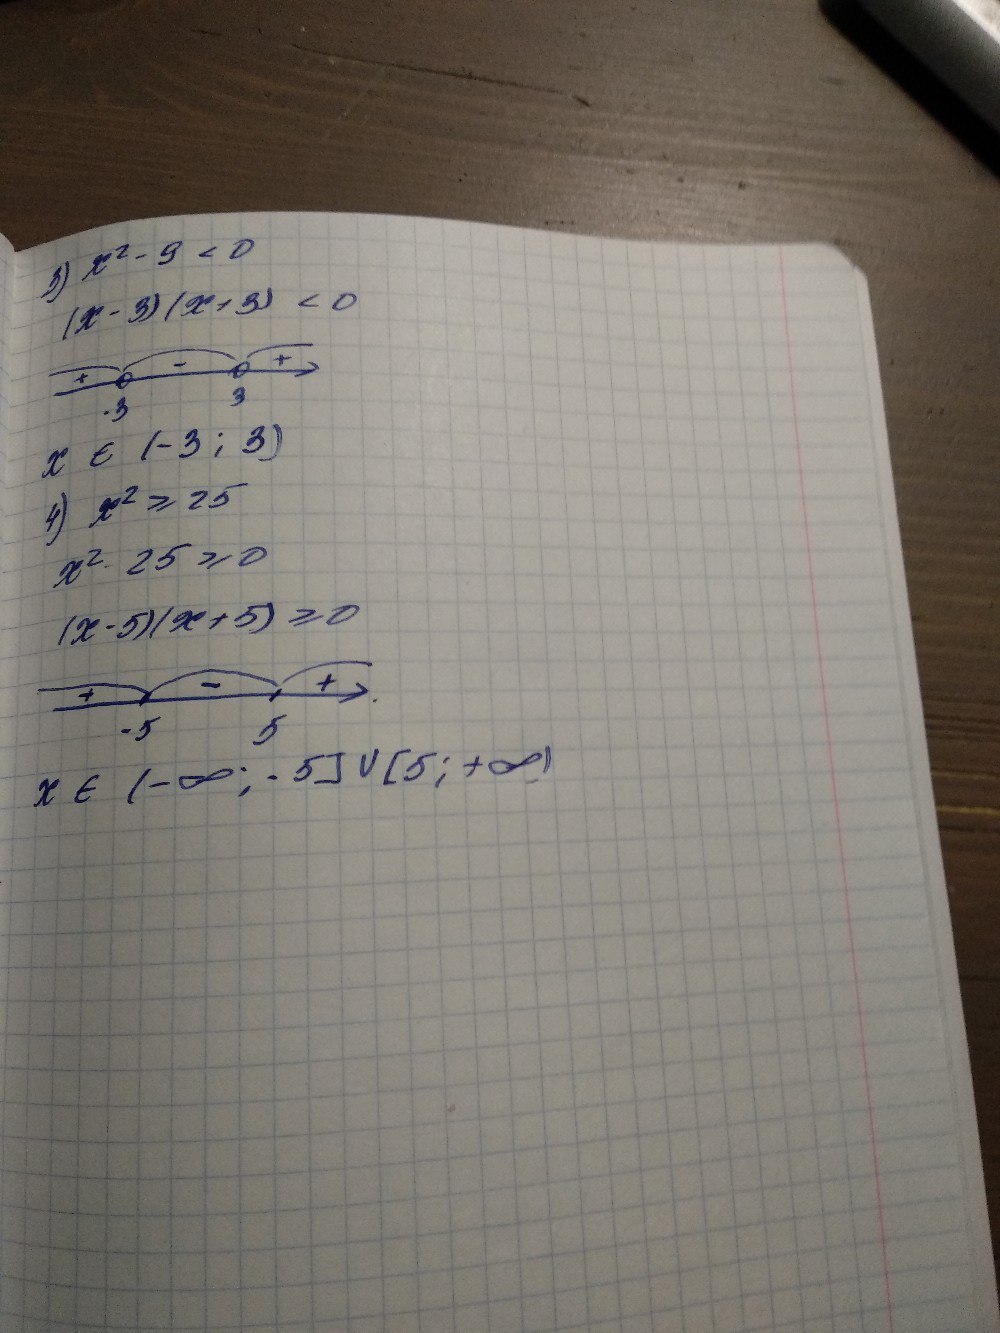 3) x² - 9 < 0
(x - 3)(x + 3) < 0
+ - +
-3 3
x ∈ (-3; 3)
4) x² ⩾ 25
x² - 25 ⩾ 0
(x - 5)(x + 5) ⩾ 0
+ - +
-5 5
x ∈ (-∞; -5] ∪ [5; +∞)